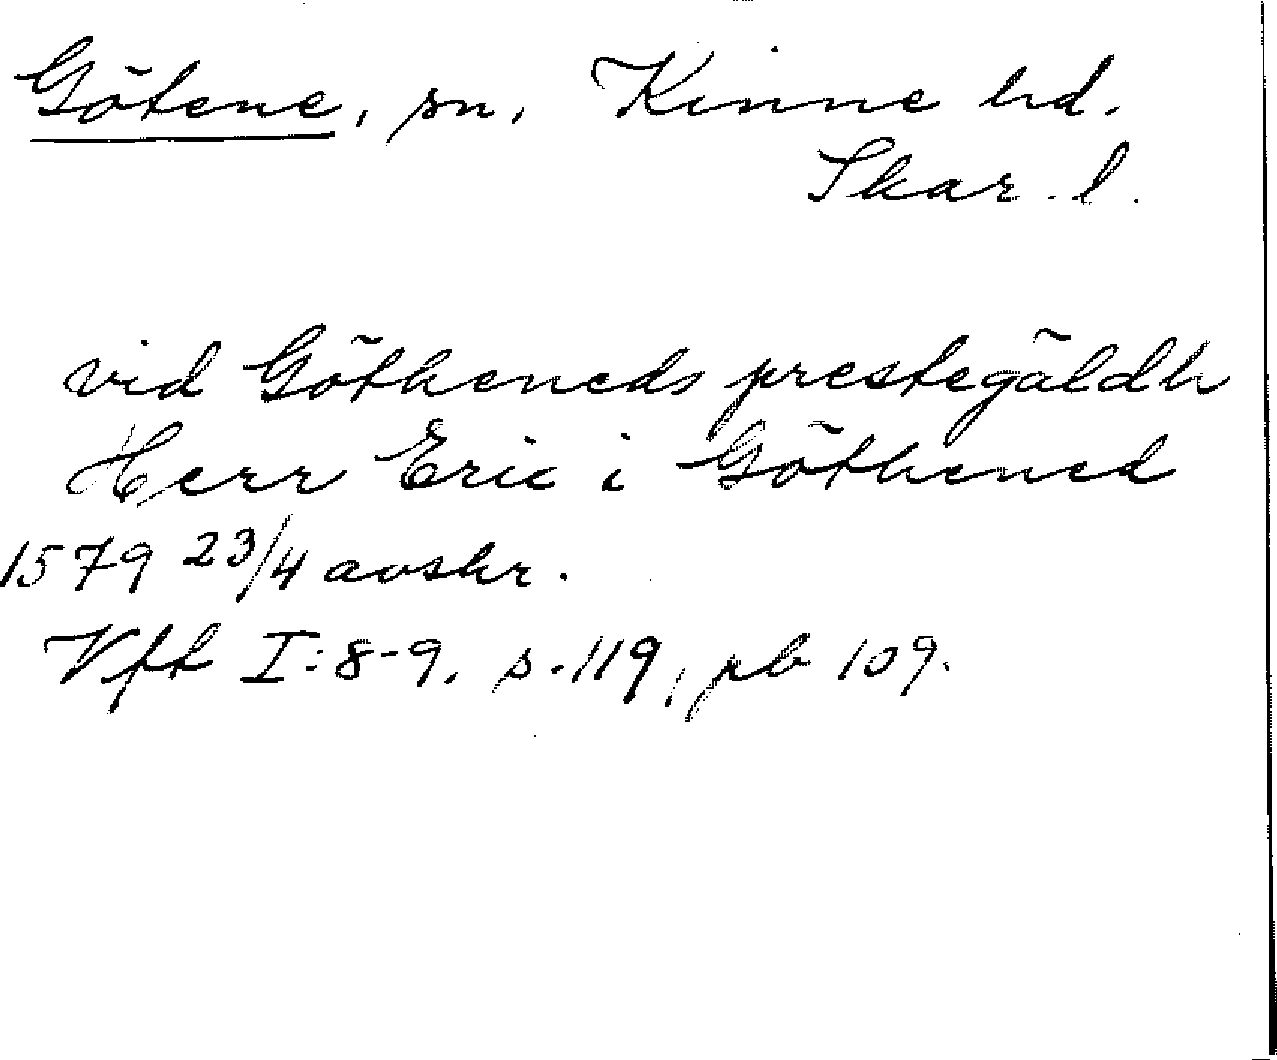 Götene, sn, Kinne hd.
Skar. l.
vid Götheneds prestegäldh
Herr Eric i Göthened
1579 23/4 avskr.
Vft I:8-9. s. 119, pb 109.